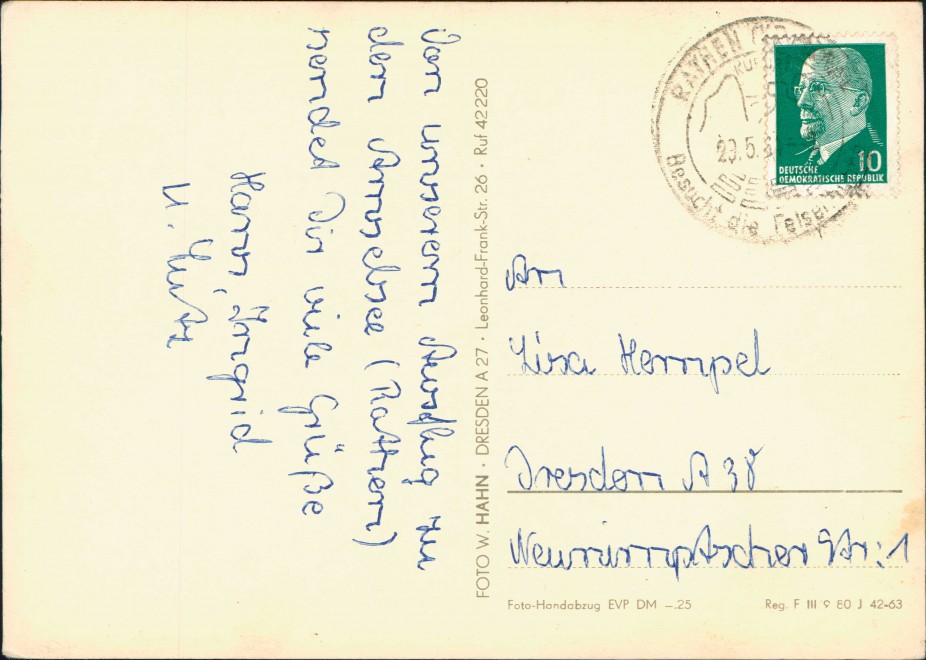 Von unserem Ausflug zu
den Amselsee (Rathen)
sendet Dir viele Grüße
Hann, Ingrid
u. Lutz
FOTO W. HAHN · DRESDEN A 27 · Leonhard-Frank-Str. 26 · Ruf 42220
RATHEN
KUR
29.5.
Besucht die Felsen
DEUTSCHE
DEMOKRATISCHE REPUBLIK
10
An
Lisa Hempel
Dresden A 38
Neunimptscher Str. 1
Foto-Handabzug EVP DM –.25
Reg. F III 9 80 J 42-63